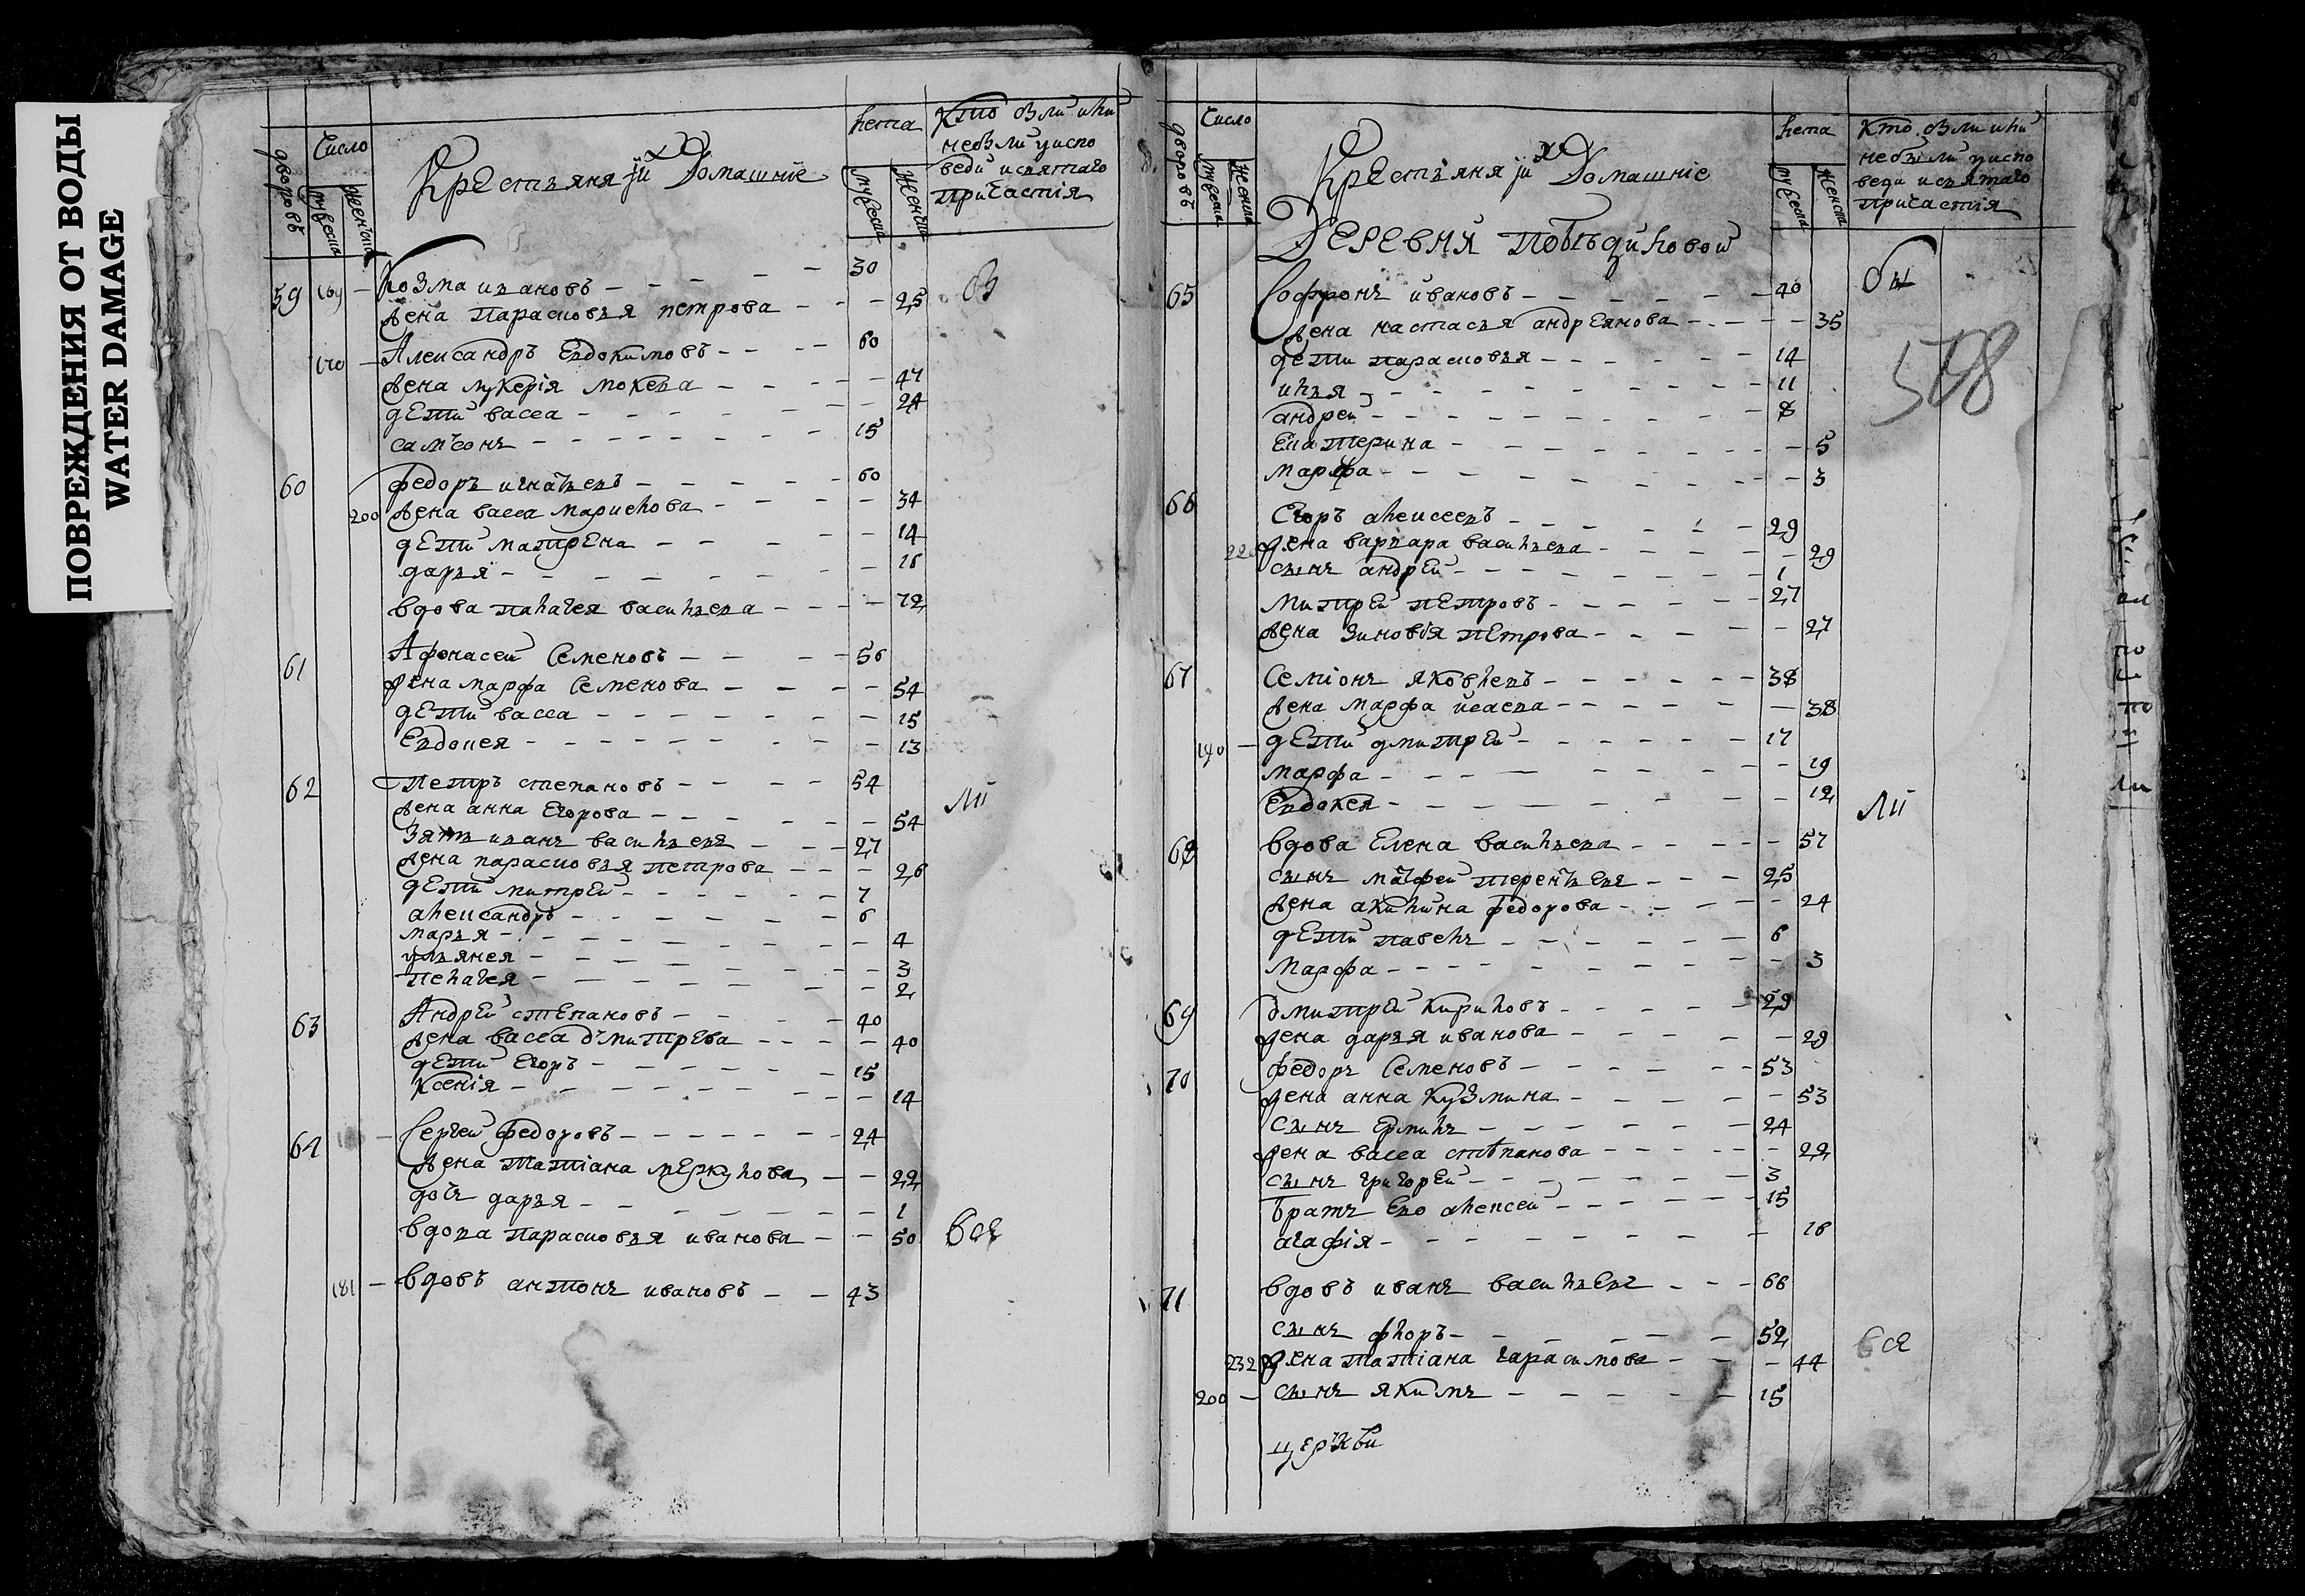 ПОВРЕЖДЕНИЯ ОТ ВОДЫ
WATER DAMAGE
дворовъ
Число
мужеска
женска
Крестьяня и их Домашние
лета
мужеска
женска
Кто был или
небыл у испо
веди и святаго
причастія
59 169 Козма ивановъ 30 Б
жена парасковья петрова 25
170 Александръ Евдокимовъ 60
жена лукерія мокева 47
дети васса 24
самсонъ 15
60 федоръ игнатьевъ 60
200 жена васса маркелова 34
дети матрена 14
дарья
вдова палагея васильева 72
61 Афонасей Семеновъ 56
жена марфа Семенова 54
дети васса 15
Евдокея 13
62 петръ степановъ 54
жена анна Егорова 54
ли
зять иванъ васильевъ 27
жена парасковья петрова 26
дети митрей 7
александръ 6
марья 4
ульянея 3
пелагея 2
63 Андрей степановъ 40
жена васса дмитрева 40
дети Егоръ 15
Ксенія 14
64 Сергей федоровъ 24
жена татіана меркулова 22
дочь дарья 1
вдова парасковья иванова 50 все
181 вдовъ антонъ ивановъ 43
дворовъ
Число
мужеска
женска
Крестьяня и их Домашние
лета
мужеска
женска
Кто был или
небыл у испо
веди и святаго
причастія
Деревня победиловой
65 Софронъ ивановъ 40 бы
жена настасья андреянова 35
дети парасковья 14
илья 11
андрей 8
508
Екатерина 5
марфа 3
66 Егоръ алексеевъ 29
220 жена варвара васильева 29
сынъ андрей 1
митрей петровъ 27
жена зиновія петрова 27
67 Семіонъ яковлевъ 38
жена марфа исаева 38
190 дети дмитрей 17
марфа 19
Евдокея 12
ли
68 вдова Елена васильева 57
сынъ матфей терентьевъ 25
жена акилина федорова 24
дети павелъ 6
марфа 3
69 дмитрей кириловъ 29
жена дарья иванова 29
70 федоръ Семеновъ 53
жена анна кузмина 53
сынъ Ермилъ 24
жена васса степанова 22
сынъ григорей 3
братъ Ево алексей 15
агафія 16
71 вдовъ иванъ васильевъ 66
сынъ флоръ 52
232 жена татіана гарасимова 44 все
200 сынъ якимъ 15
церкви